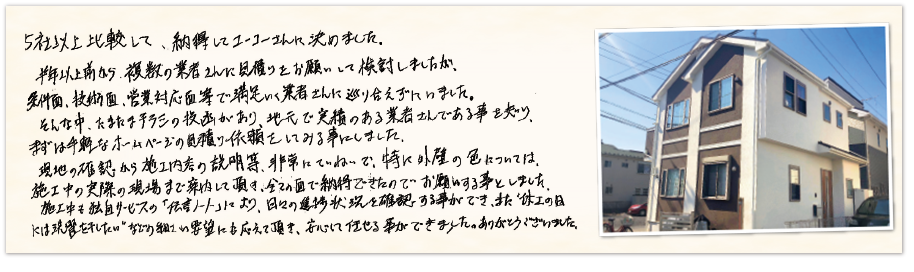 5社以上比較して、納得してユーコーさんに決めました。
半年以上前から、複数の業者さんに見積りをお願いして検討しましたが、
条件面、技術面、営業対応面等で満足いく業者さんに巡り合えずにいました。
そんな中、たまたまチラシの投函があり、地元で実績のある業者さんである事を知り、
まずは手軽なホームページの見積り依頼をしてみる事にしました。
現地の確認から施工内容の説明等、非常にていねいで、特に外壁の色については、
施工中の実際の現場まで案内して頂き、全ての面で納得できたのでお願いする事としました。
施工中も独自サービスの「伝言ノート」により、日々の進捗状況を確認する事ができ、また"休工の日
には洗濯をしたい"などの細い要望にも応えて頂き、安心して任せる事ができました。ありがとうございました。